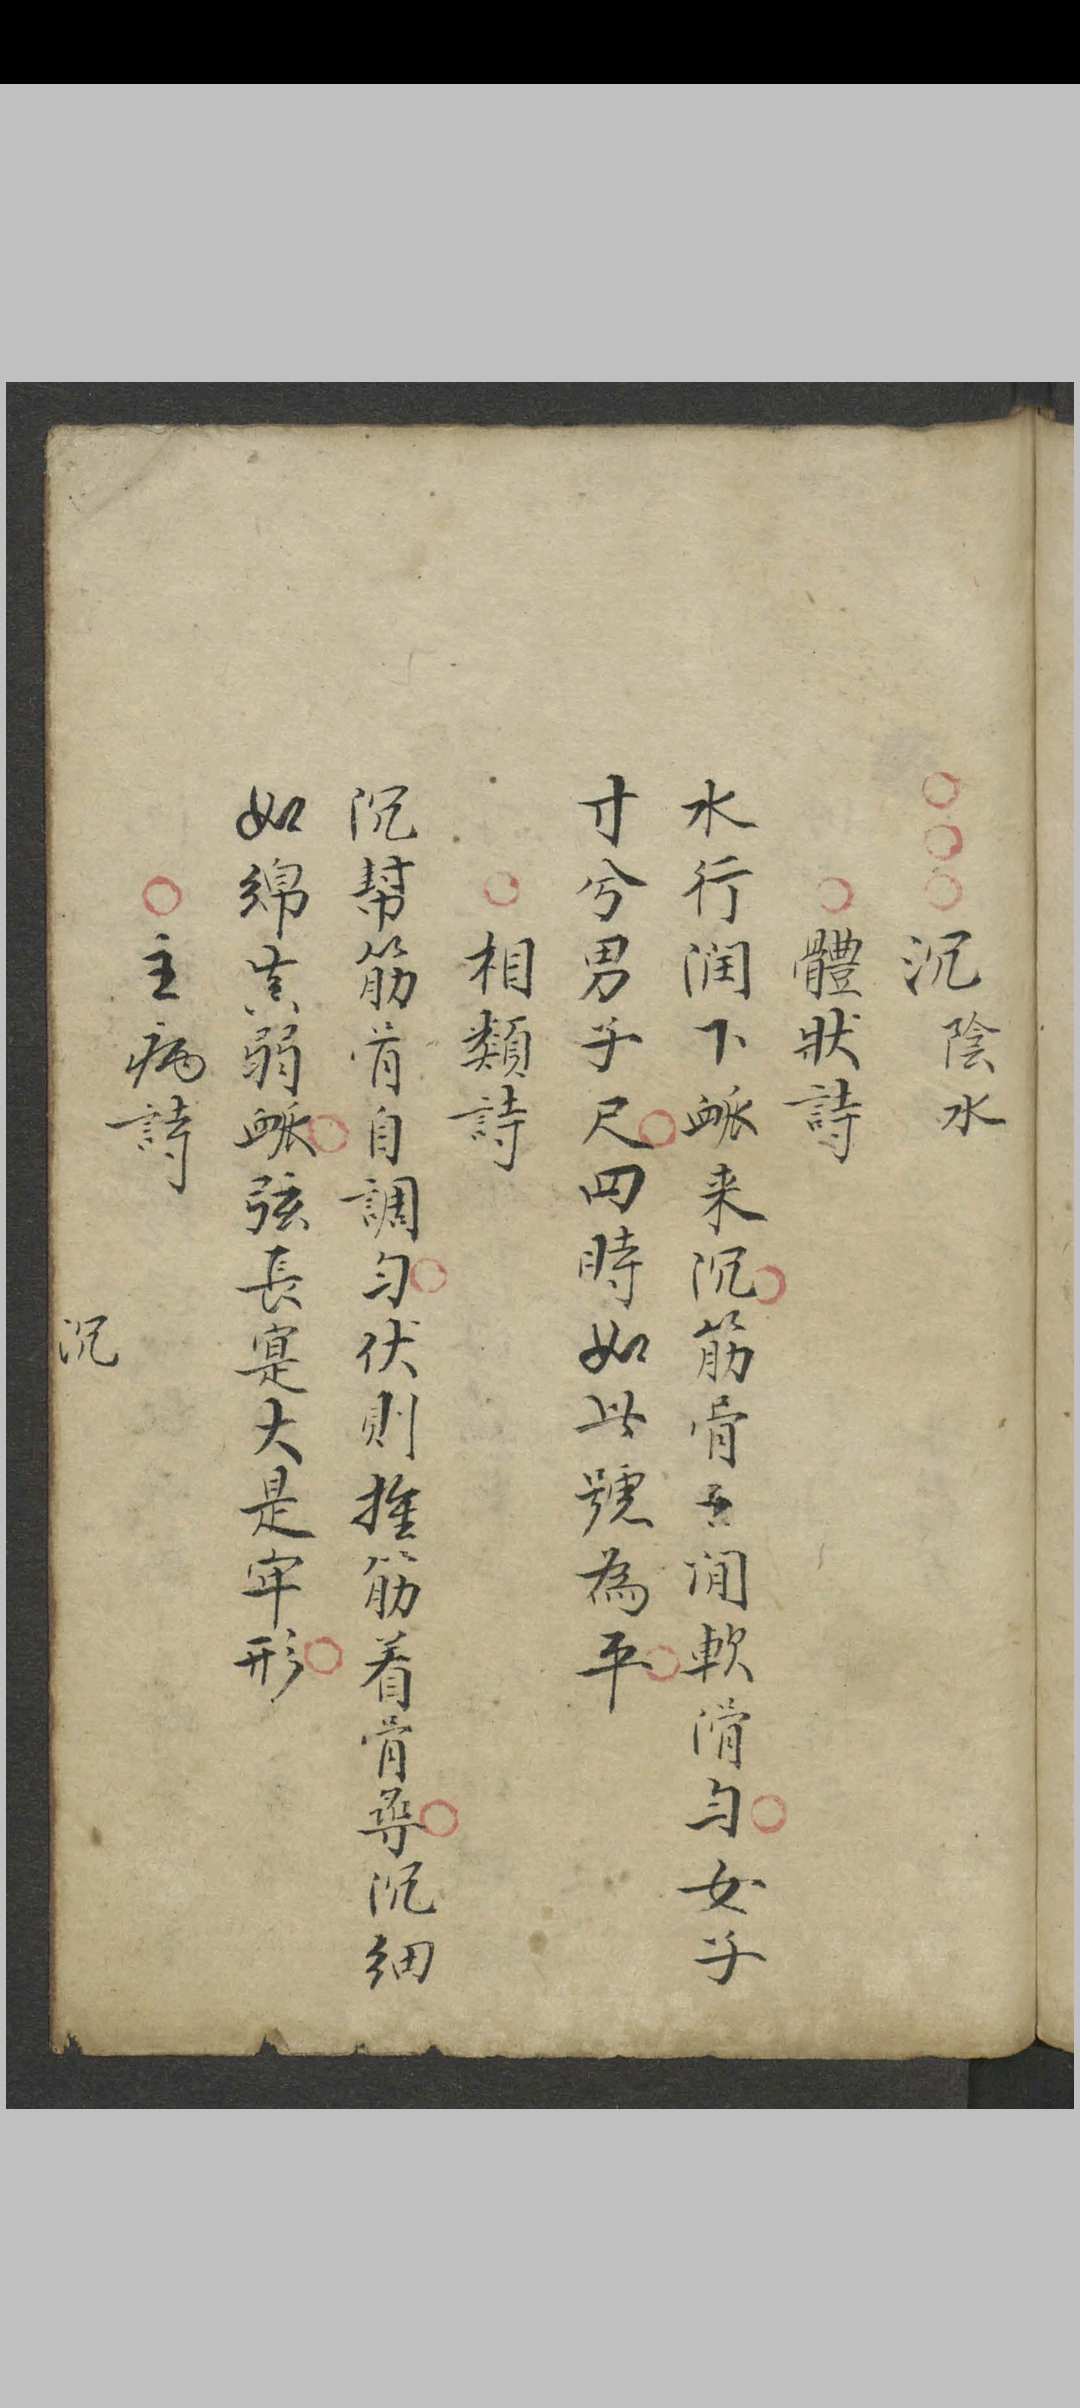 沉陰水
體狀詩
水行润下䘑来沉筋骨间軟滑勻女子
寸兮男子尺四時如此號為平
相類詩
沉幫筋骨自調勻伏則推筋着骨尋沉細
如綿真弱䘑弦長寔大是牢形
主病詩
沉